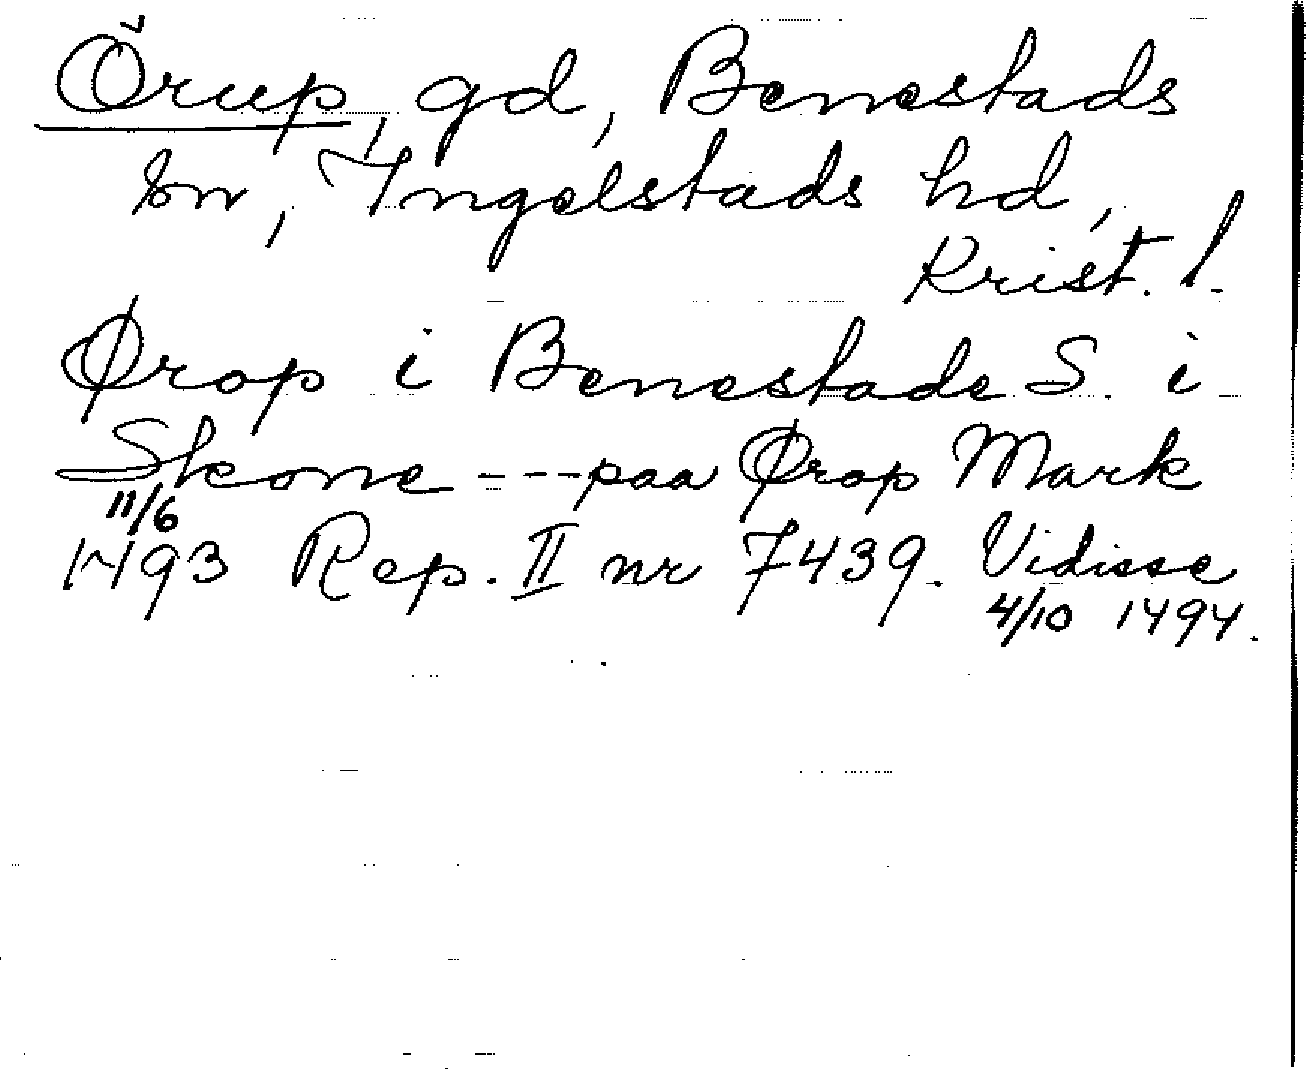 Örup, gd, Benestads
sn, Ingelstads hd,
Krist. l.
Ørop i Benestade S. i
Skone - - - paa Ørop Mark
11/6
1493 Rep. II nr 7439. Vidisse
4/10 1494.